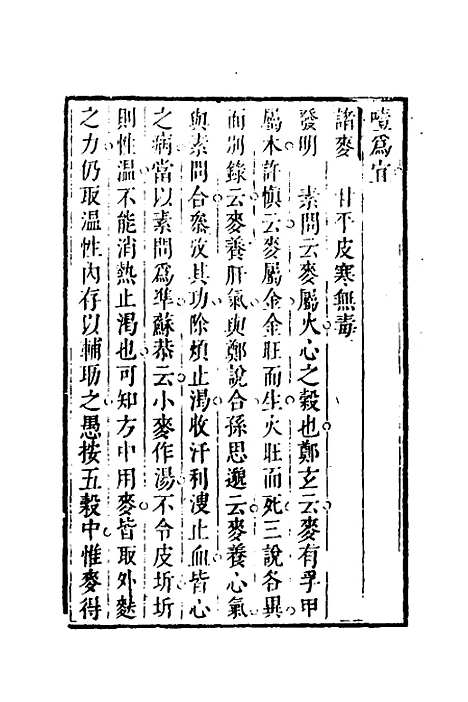 噎爲宜
諸麥　甘平皮寒無毒
發明　素問云麥屬火心之穀也鄭玄云麥有孚甲
屬木許慎云麥屬金金旺而生火旺而死三說各異
而別錄云麥養肝氣與鄭說合孫思邈云麥養心氣
與素問合叅攷其功除煩止渴收汗利溲止血皆心
之病當以素問爲準蘇恭云小麥作湯不令皮坼坼
則性温不能消熱止渴也可知方中用麥皆取外麩
之力仍取温性內存以輔助之愚按五穀中惟麥得